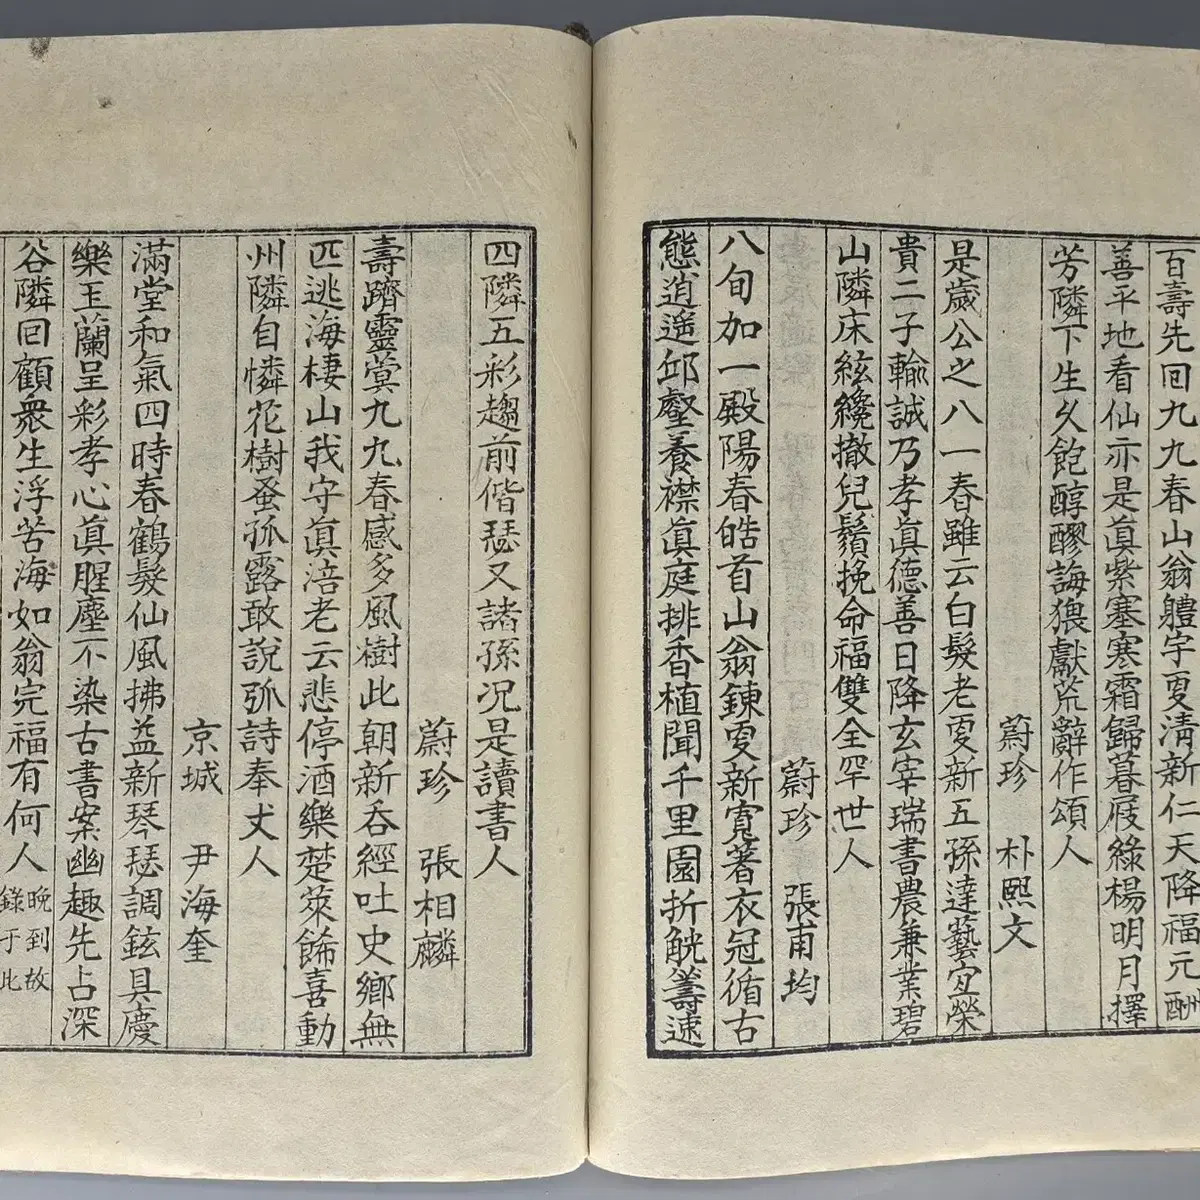 百壽先回九九春山翁軆宇更淸新仁天降福元酬
善平地看仙亦是眞紫塞寒霜歸暮屐綠楊明月擇
芳隣下生久飽醇醪誨猥獻荒辭作頌人
蔚珍 朴熙文
是歲公之八一春雖云白髮老更新五孫達藝宜榮
貴二子輸誠乃孝眞德善日降玄宰瑞書農兼業碧
山隣床絃纔撤兒鬚挽命福雙全罕世人
蔚珍 張甫均
八旬加一殿陽春皓首山翁鍊更新寬著衣冠循古
態逍遙邱壑養襟眞庭排香植聞千里園折觥籌速
四隣五彩趨前偕瑟又諸孫况是讀書人
蔚珍 張相麟
壽躋靈蓂九九春感多風樹此朝新呑經吐史鄉無
匹逃海棲山我守眞涪老云悲停酒樂楚萊餙喜動
州隣自憐花樹蚤孤露敢說弧詩奉丈人
京城 尹海奎
滿堂和氣四時春鶴髮仙風拂益新琴瑟調鉉具慶
樂玉蘭呈彩孝心眞腥塵不染古書案幽趣先占深
谷隣回顧衆生浮苦海如翁完福有何人 晩到故
錄于此